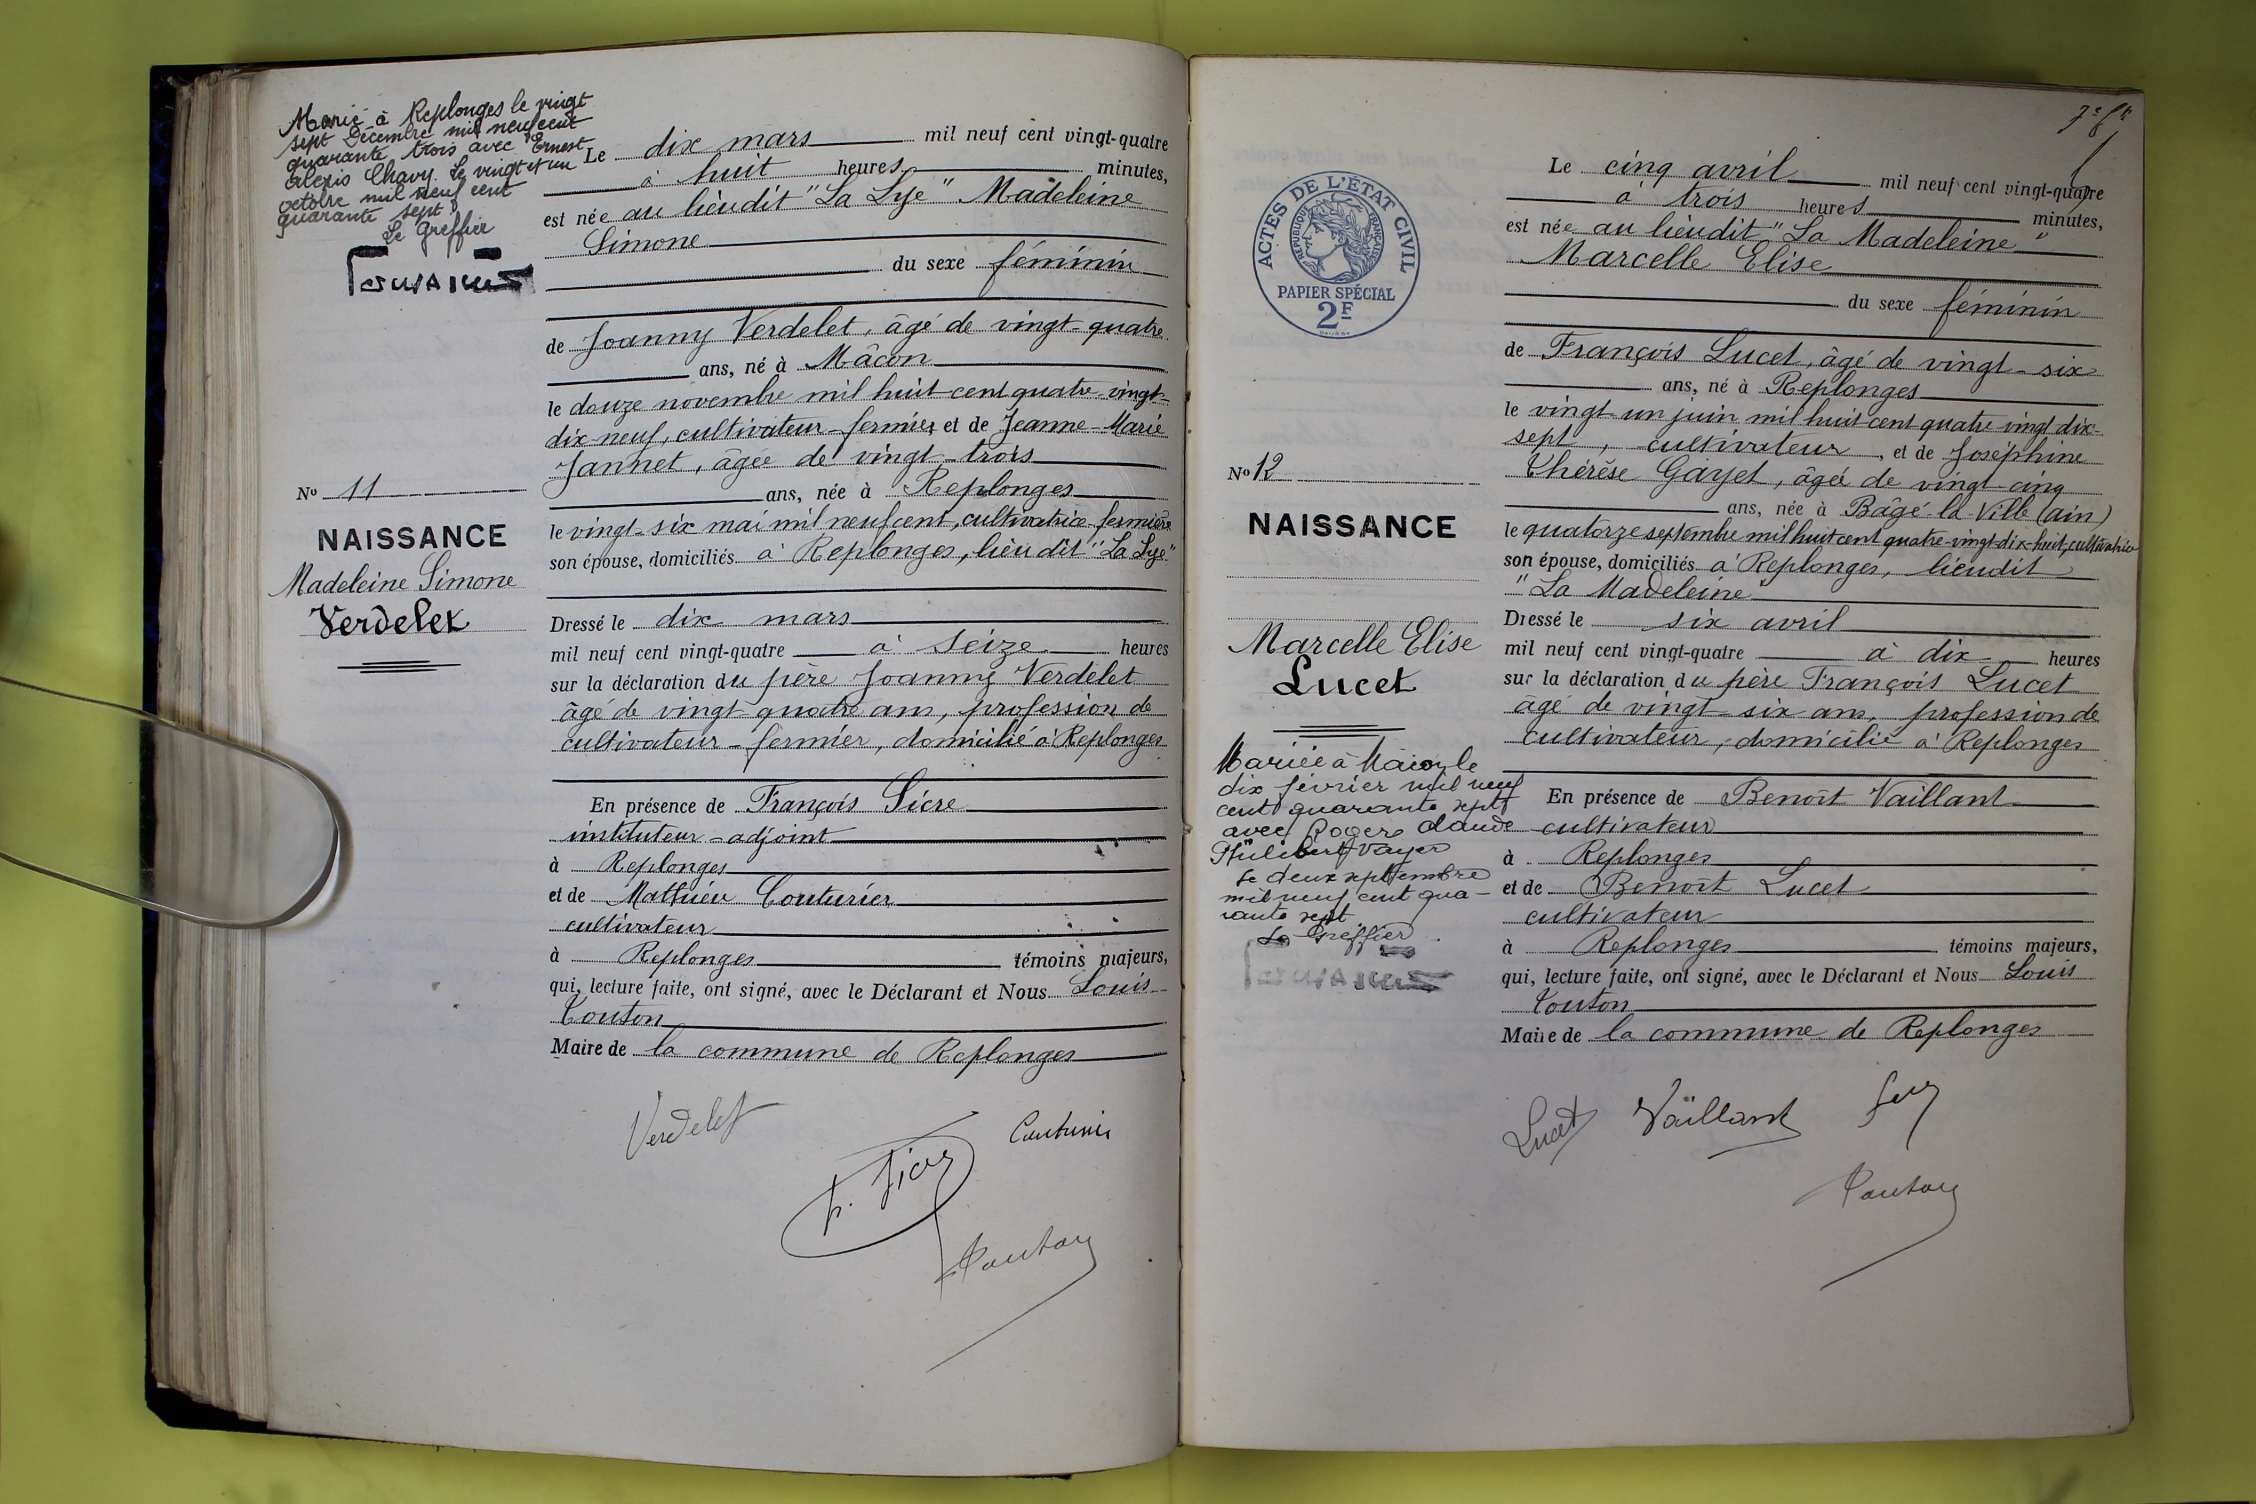 Marié à Replonges le vingt
sept Décembre mil neuf cent
quarante trois avec Ernest
Alexis Chavy. Le vingt et un
octobre mil neuf cent
quarante sept
Le Greffier
Le dix mars mil neuf cent vingt-quatre
à huit heures minutes,
est née au lieudit "La Lye" Madeleine
Simone
du sexe féminin
de Joanny Verdelet, âgé de vingt-quatre
ans, né à Mâcon
le douze novembre mil huit cent quatre-vingt-
dix-neuf, cultivateur-fermier, et de Jeanne-Marie
Jannet, âgée de vingt-trois
ans, née à Replonges
le vingt-six mai mil neuf cent, cultivatrice-fermière
son épouse, domiciliés à Replonges, lieu dit "La Lye"
Dressé le dix mars
mil neuf cent vingt-quatre à seize heures
sur la déclaration du père Joanny Verdelet
âgé de vingt-quatre ans, profession de
cultivateur-fermier, domicilié à Replonges
En présence de François Sicre
instituteur-adjoint
à Replonges
et de Mathieu Couturier
cultivateur
à Replonges témoins majeurs,
qui, lecture faite, ont signé, avec le Déclarant et Nous Louis
Touton
Maire de la commune de Replonges
No 11
NAISSANCE
Madeleine Simone
Verdelet
Verdelet
Couturier
F. Sicre
Touton
7e ft
ACTES DE L'ÉTAT CIVIL
RÉPUBLIQUE FRANÇAISE
PAPIER SPÉCIAL
2F
Le cinq avril mil neuf cent vingt-quatre
à trois heures minutes,
est née au lieudit "La Madeleine"
Marcelle Elise
du sexe féminin
de François Lucet, âgé de vingt-six
ans, né à Replonges
le vingt-un juin mil huit cent quatre-vingt dix-
sept, cultivateur, et de Joséphine
Thérèse Gayet, âgée de vingt-cinq
ans, née à Bâgé-la-Ville (ain)
le quatorze septembre mil huit cent quatre-vingt-dix-huit, cultivatrice
son épouse, domiciliés à Replonges, lieudit
"La Madeleine"
Dressé le six avril
mil neuf cent vingt-quatre à dix heures
sur la déclaration du père François Lucet
âgé de vingt-six ans, profession de
cultivateur, domicilié à Replonges
En présence de Benoît Vaillant
cultivateur
à Replonges
et de Benoît Lucet
cultivateur
à Replonges témoins majeurs,
qui, lecture faite, ont signé, avec le Déclarant et Nous Louis
Touton
Maire de la commune de Replonges
No 12
NAISSANCE
Marcelle Elise
Lucet
Mariée à Mâcon le
dix février mil neuf
cent quarante sept
avec Roger Claude
Philibert Voyer
Le deux septembre
mil neuf cent qua-
rante sept
Le Greffier
Lucet
Vaillant
Touton